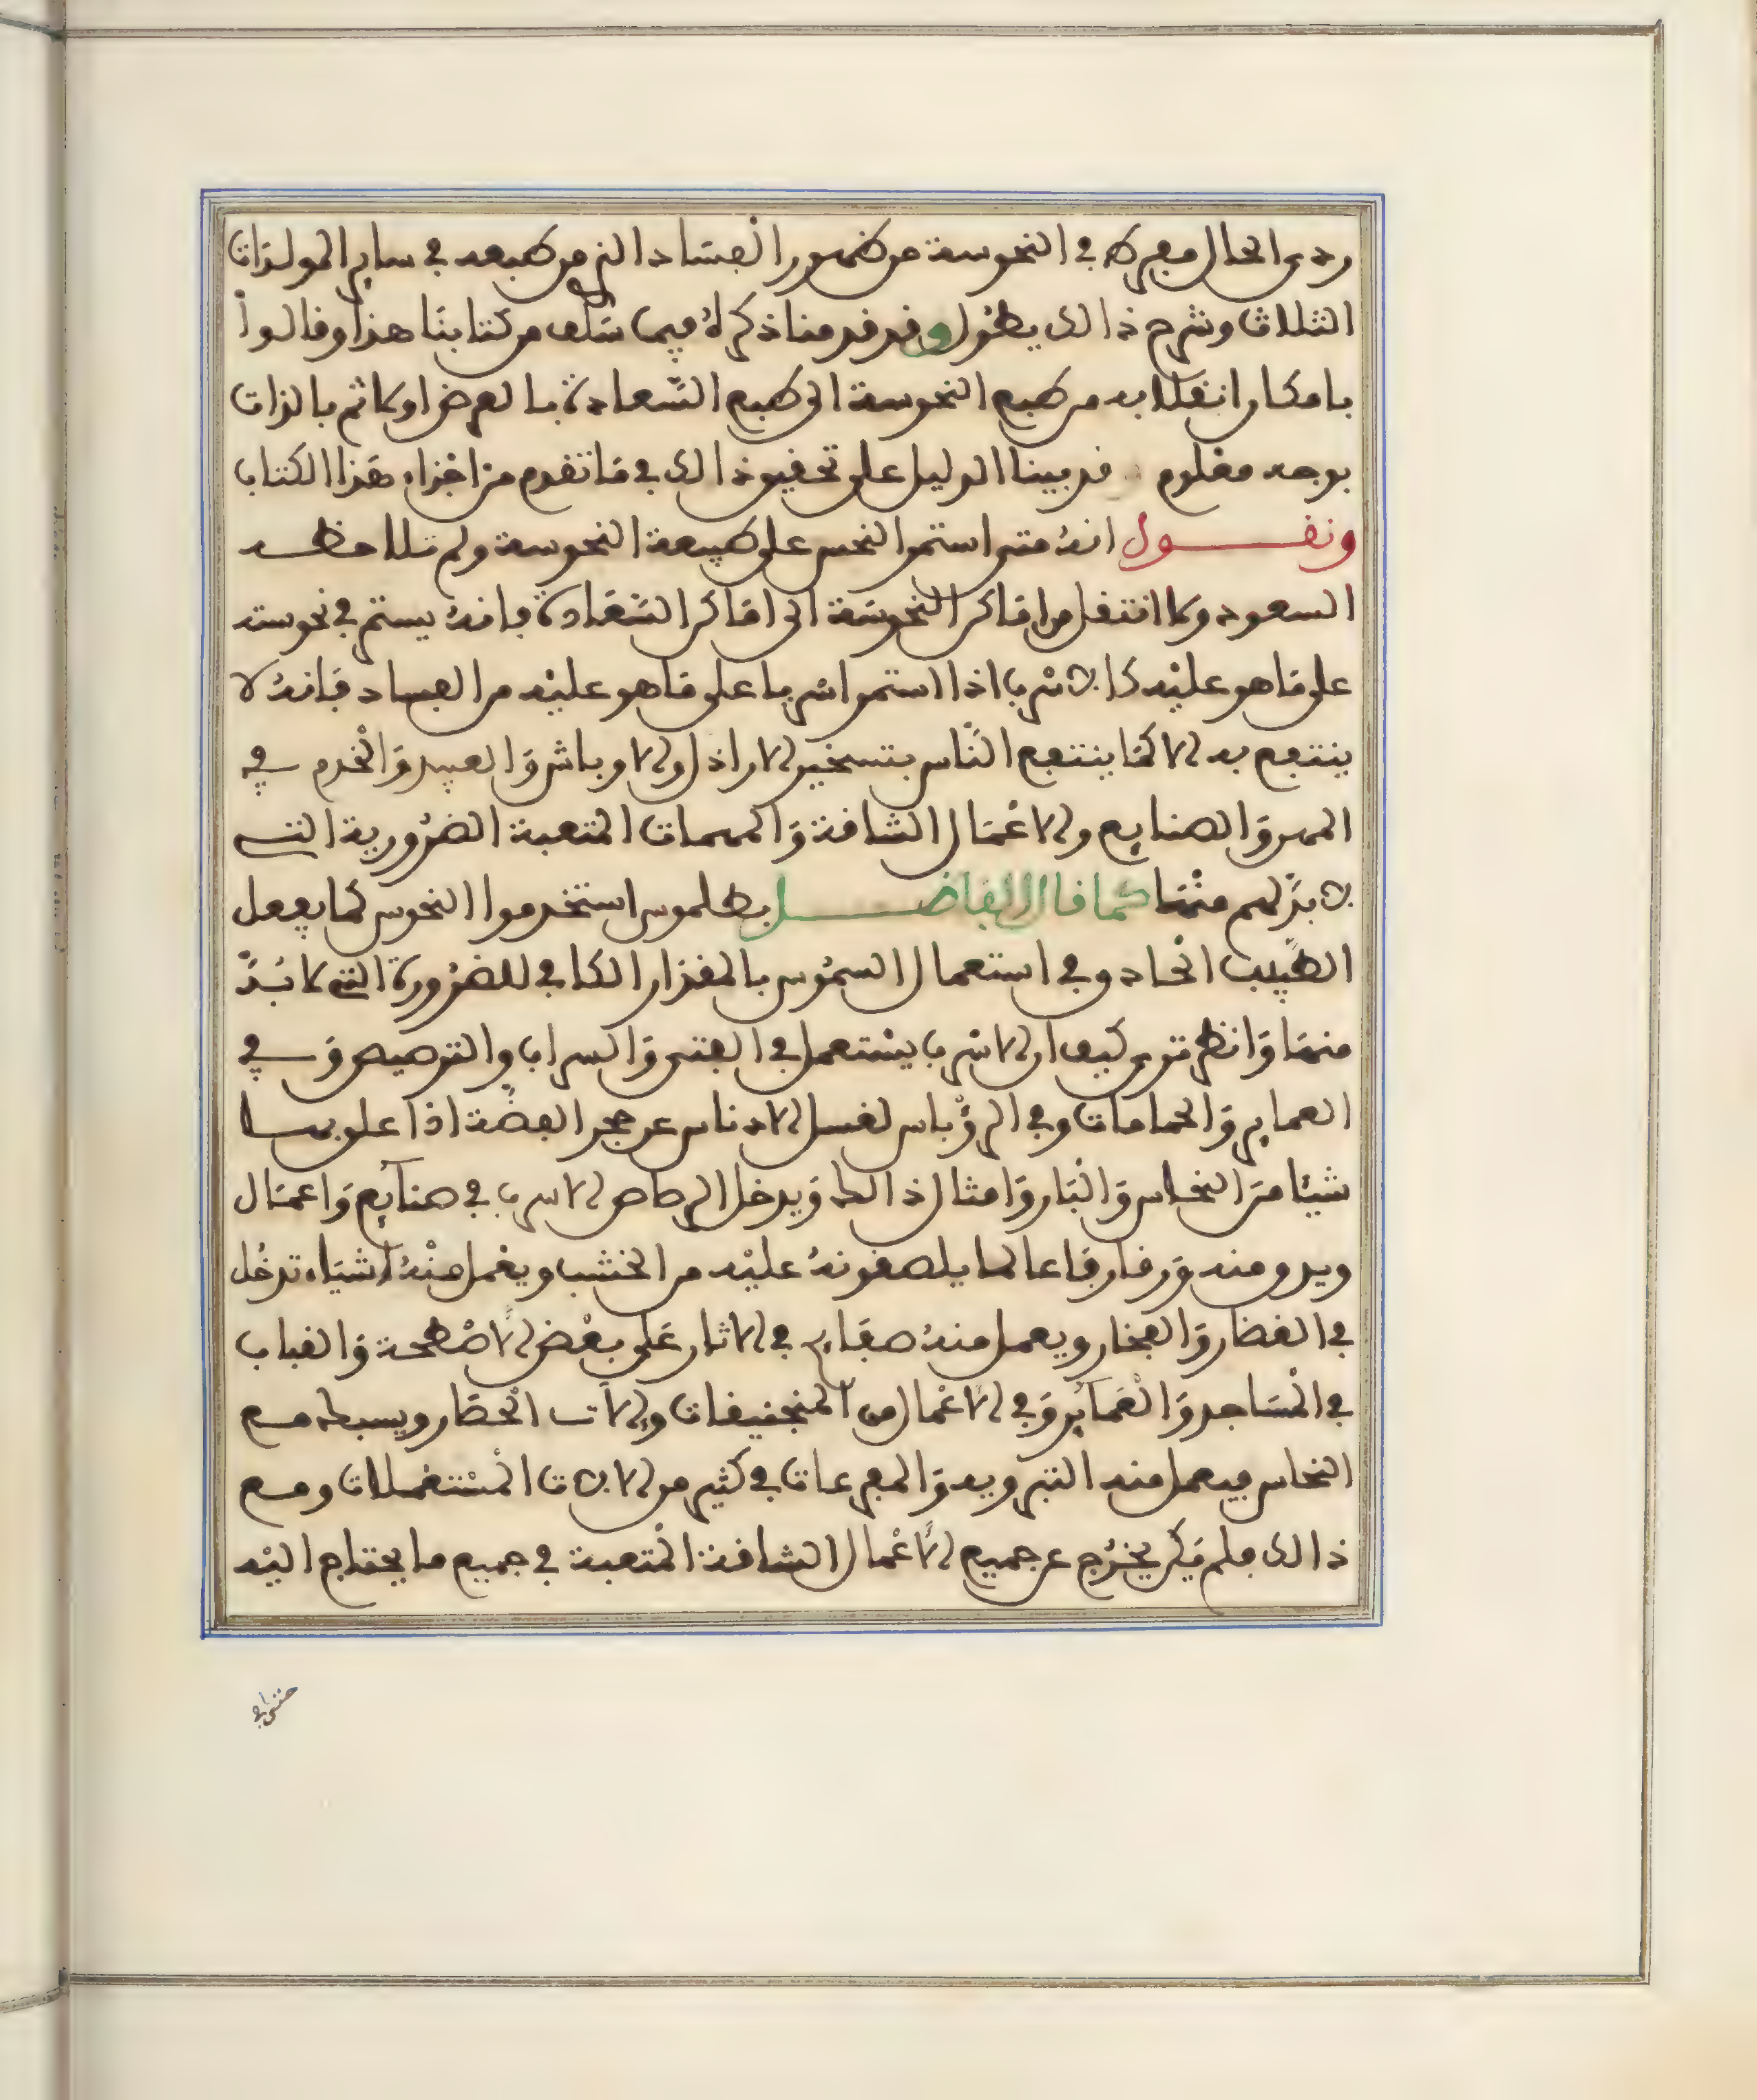 ردى الحال مفرط في النحوسة من ظهور الفساد الذي من طبعه في ساير المولدات
الثلاث وشرح ذالك يطول وقد قدمنا ذكرله فيما سلف من كتابنا هذا وقالوا
بامكان انقلابه من طبع النحوسة الى طبع السعادة بالعرض او كانم بالذات
بوجه معلوم قد بينا الدليل على تحقيق ذالك في ما تقدم من اجزاء هذا الكتاب
ونقول انه متى استمر النحس على طبيعة النحوسة ولم تلاحظه
السعود ولا انتقل من اماكن النحوسة الى اماكن السعادة فانه يستمر في نحوسته
على ما هو عليه كالاسرب اذا استمر اسربا على ما هو عليه من الفساد فانه لا
ينتفع به الا كما ينتفع الناس بتسخير الاراذل والاوباش والعبيد والخدم في
المهن والصنايع والاعمال الشاقة والمهمات المتعبة الضرورية التي
لا بد لهم منها كما قال الفاضل بطلموس استخدموا النحوس كما يفعل
الطبيب الحاذق في استعمال السموس بالمقدار الكافي للضرورة التي لا بد
منها وانظر ترى كيف ان الاسرب يستعمل في القنى والسراب والترصيص وفي
العماير والحمامات وفي الرؤباس لغسل الادناس عن حجر الفضة اذا علق بها
شيئا من النحاس والنار وامثال ذالك ويدخل الرصاص الاسرب في صنايع واعمال
ويدق منه ورقا رقاعا لما يلصقونه عليه من الخشب ويعمل منه اشياء تدخل
في الغضار والفخار ويعمل منه صفايح في الاثار على بعض الاضطحة والقباب
في المساجد والعماير وفي الاعمال من المنجنيقات والات الحصار ويسبك مع
النحاس فيعمل منه التبرويه والمفرعات في كثير من الالات المستعملات ومع
ذالك فلم يكن يخرج عن جميع الاعمال الشاقة المتعبة في جميع ما يحتاج اليه